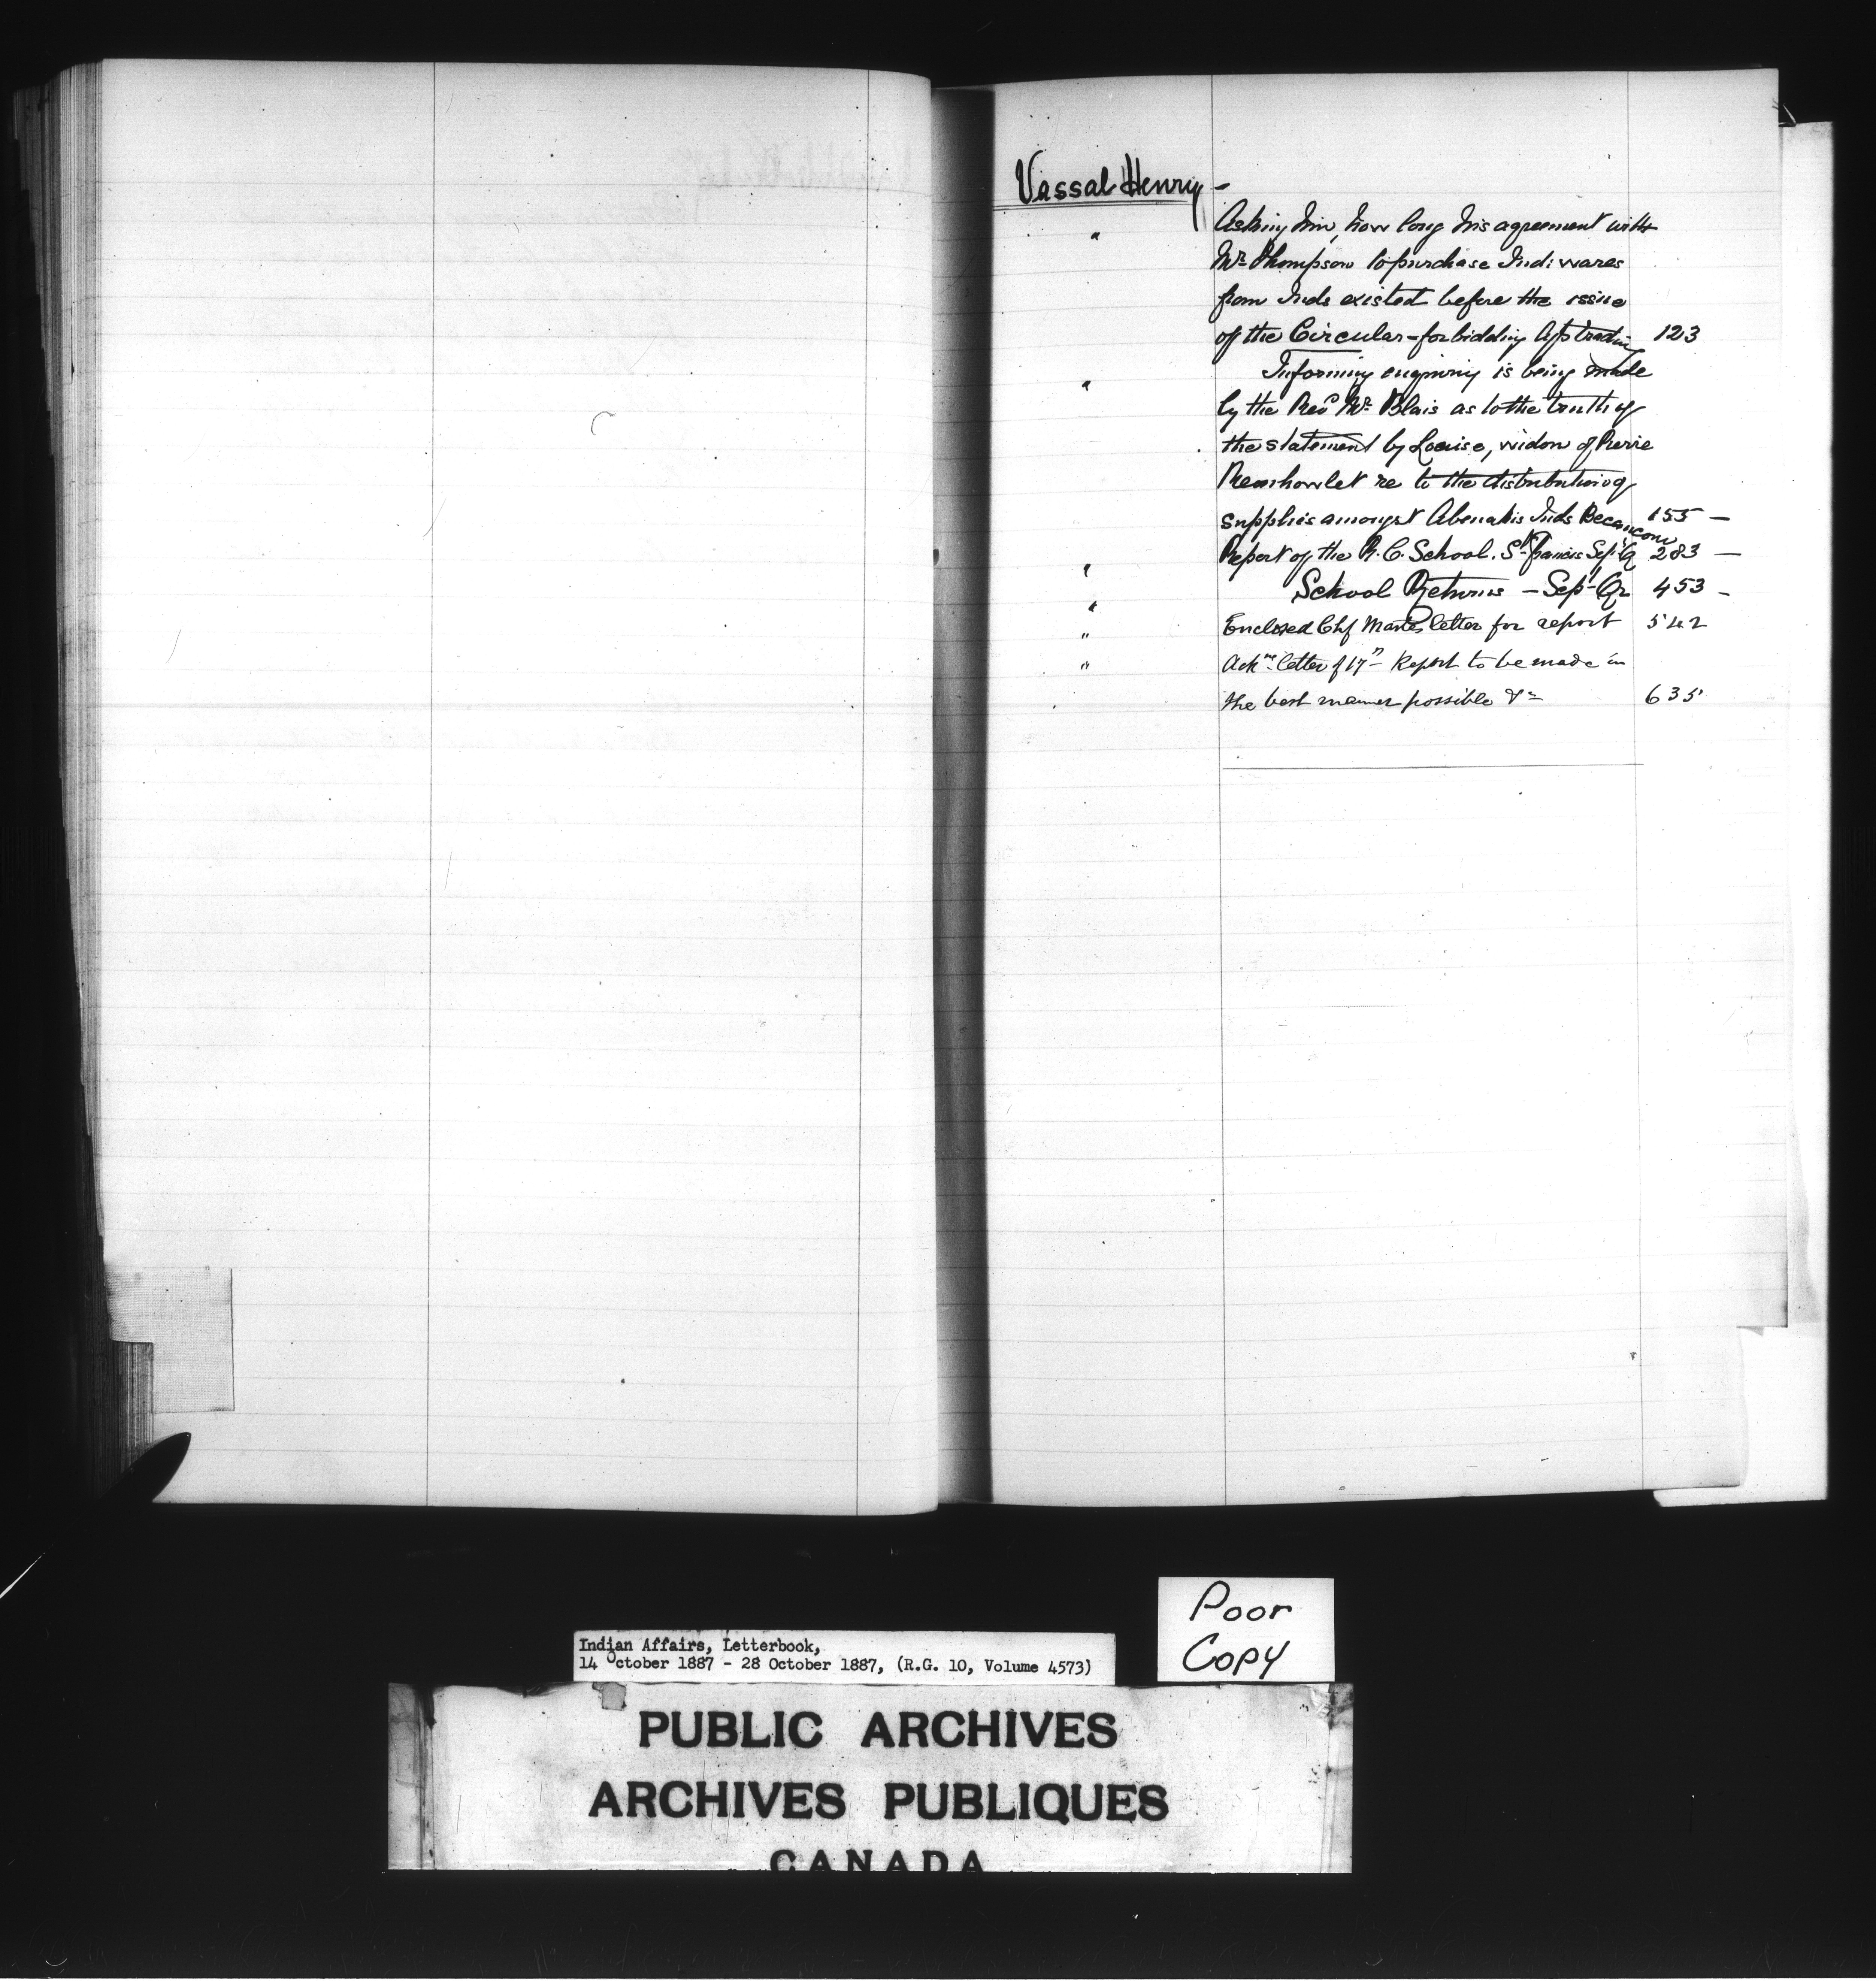 Vassal Henry -
" Asking him, how long his agreement with
Mr. Thompson to purchase Indi: wares
from Inds existed before the issue
of the Circular - forbidding Agts trading 123
" Informing enquiry is being made
by the Revd Mr. Blais as to the truth of
the statement by Louise, widow of Pierre
re to the distribution of
supplies amongst Abenakis Inds Becancour 155 -
" Report of the R. C. School. St. Francis Sept Qr 283 -
" School Returns - Sept Qr 453 -
" Enclosed Chf letter for report 542
" Ack'ng letter of 17th Report to be made in
the best manner possible &c 635
Poor
Copy
Indian Affairs, Letterbook,
14 October 1887 - 28 October 1887, (R.G. 10, Volume 4573)
PUBLIC ARCHIVES
ARCHIVES PUBLIQUES
CANADA